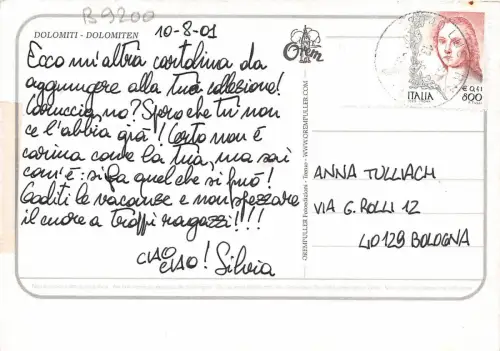 B9200
DOLOMITI - DOLOMITEN
10-8-01
Ecco un'altra cartolina da
aggiungere alla tua collezione!
Caruccia, no? Spero che tu non
ce l'abbia già! Certo non è
carina come la tua, ma sai
com'è: si fa quel che si può!
Goditi le vacanze e non spezzare
il cuore a troppi ragazzi!!!!
CIAO
CIAO! Silvia
Orem
OREMPULLER Fotoedizioni - Trento - WWW.OREMPULLER.COM
€ 0,41
800
ITALIA
ANNA TULLIACH
VIA G. ROLLI 12
40129 BOLOGNA